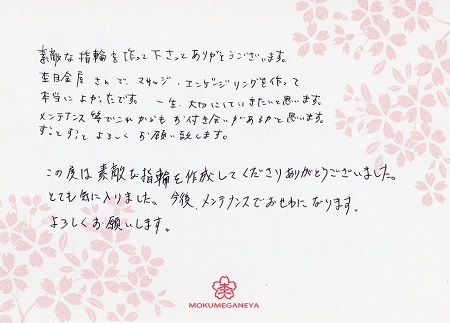 素敵な指輪を作って下さってありがとうございます。
杢目金屋さんで、マリッジ・エンゲージリングを作って
本当によかったです。一生、大切にしていきたいと思います。
メンテナンス等でこれからもお付き合いがあるかと思います。
ずっとずっとよろしくお願い致します。
この度は素敵な指輪を作成してくださりありがとうございました。
とても気に入りました。今後、メンテナンスでおせわになります。
よろしくお願いします。
杢
MOKUMEGANEYA